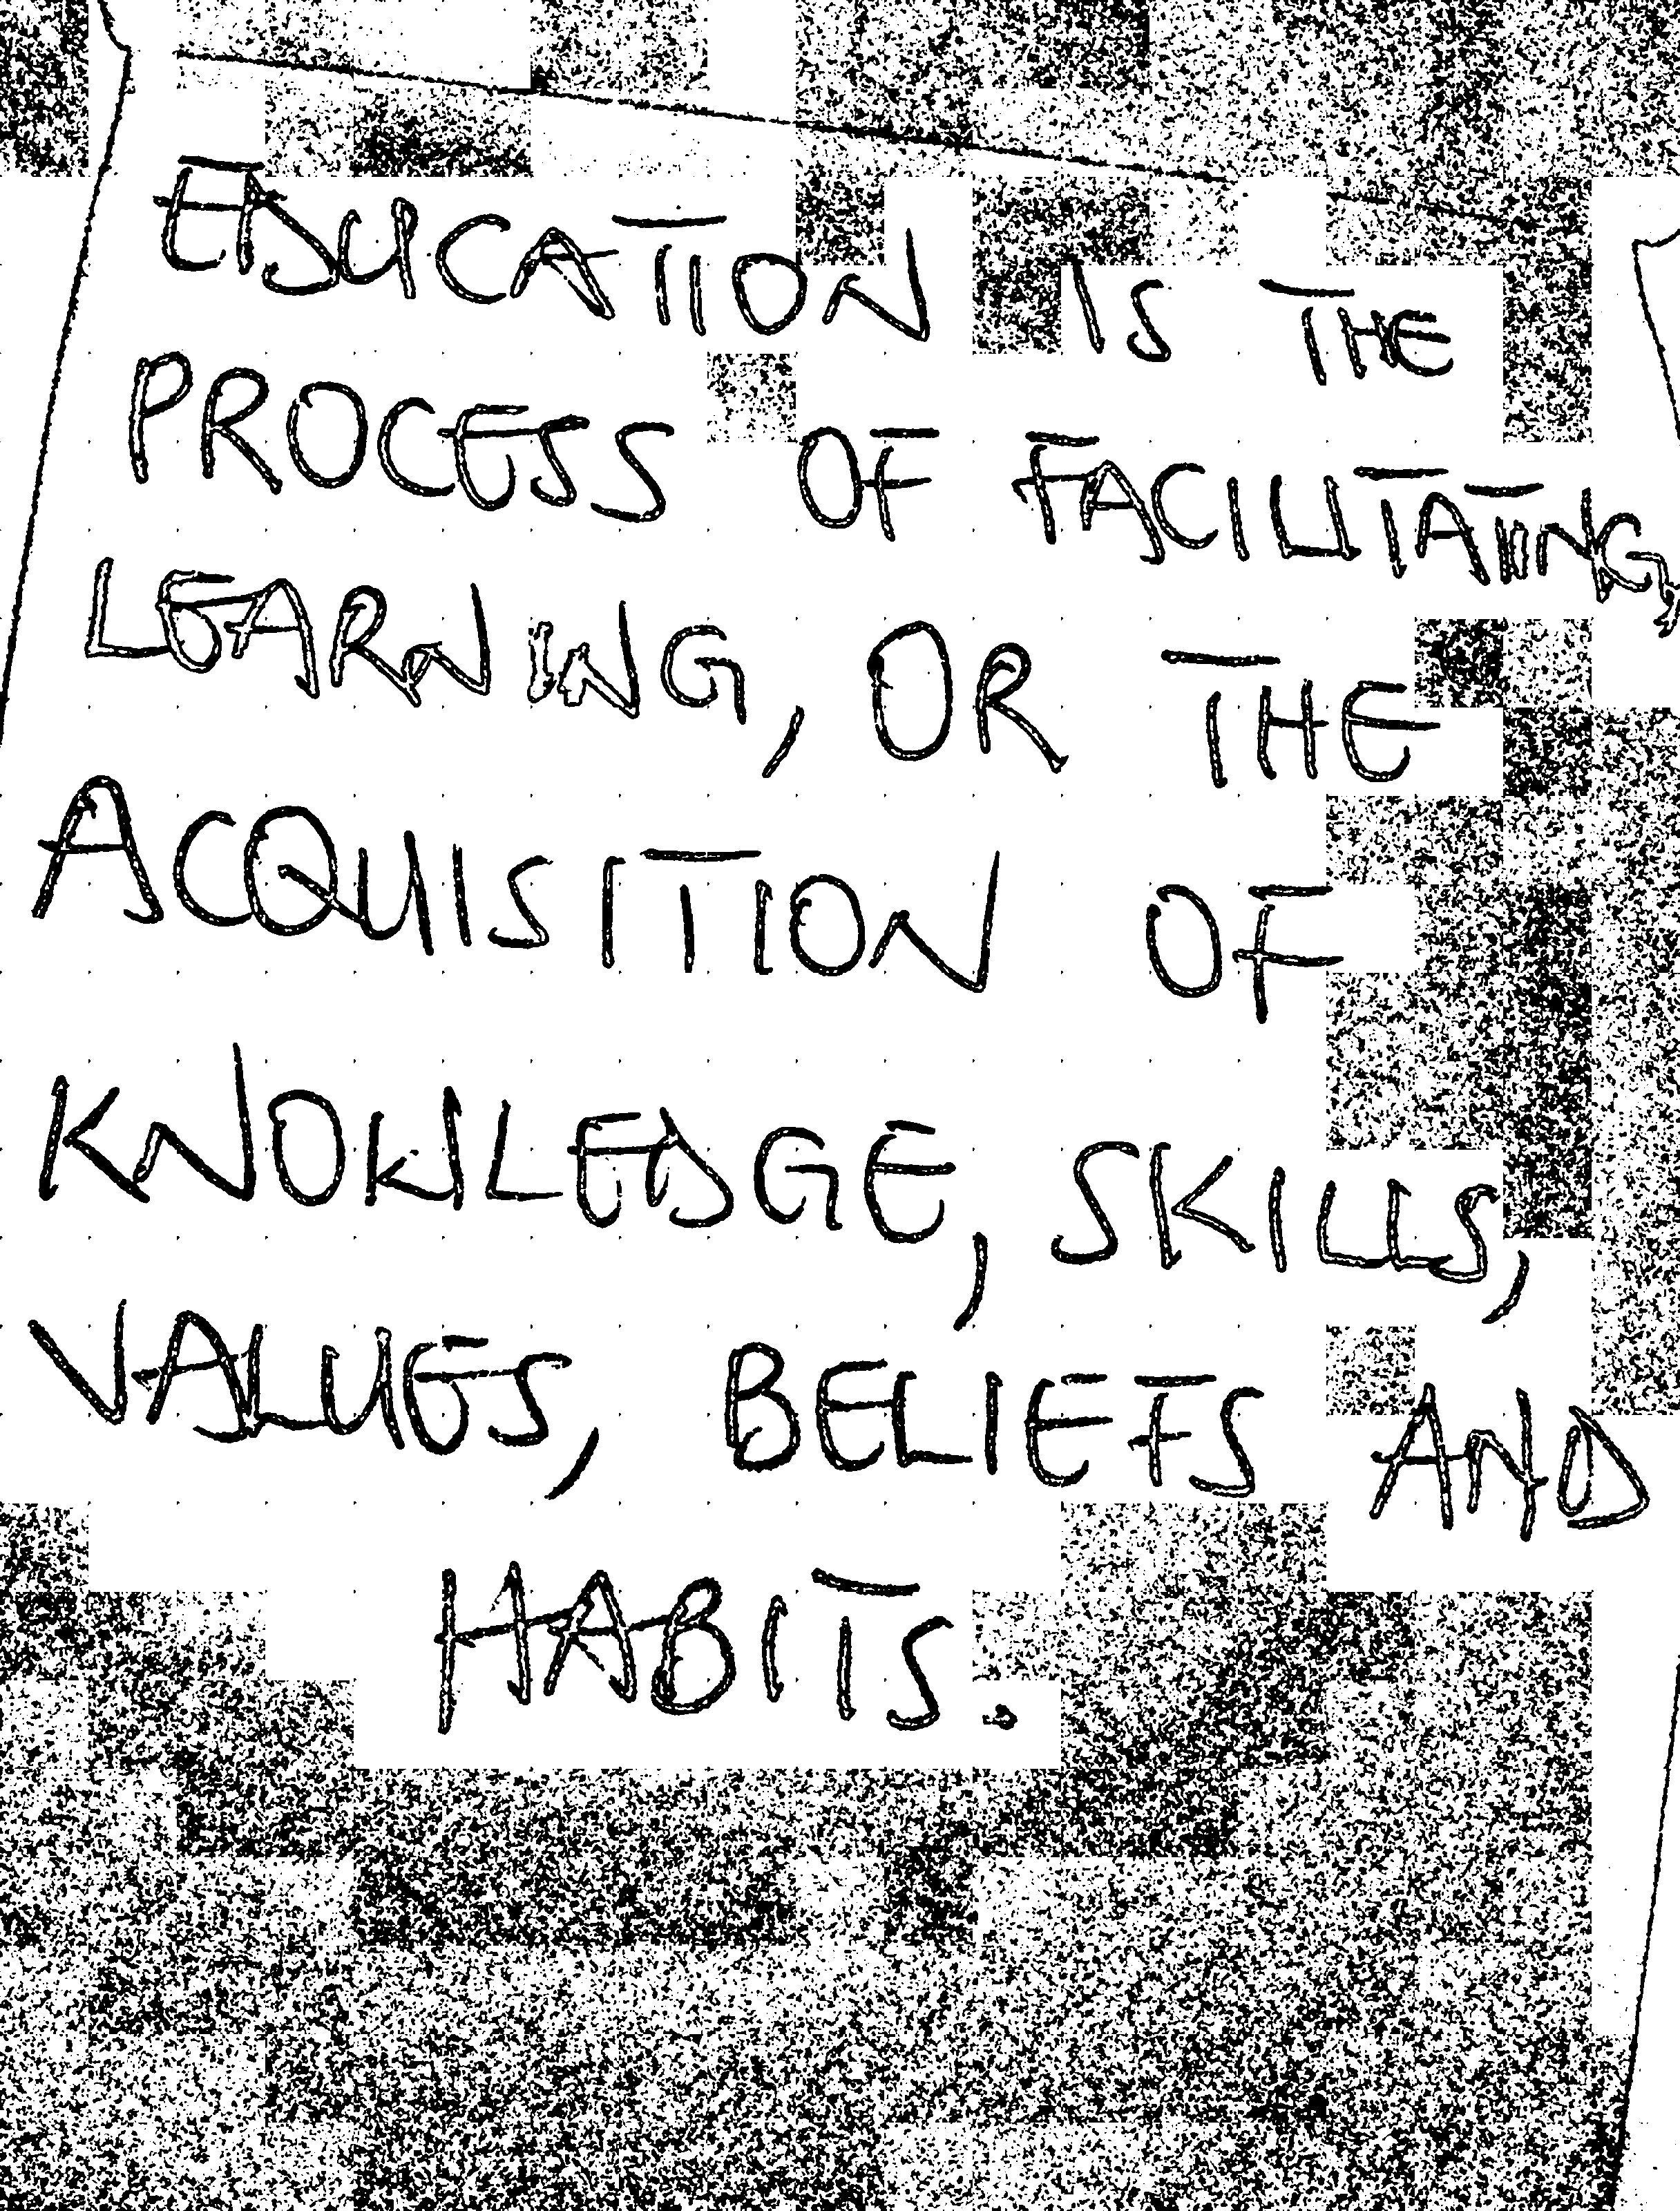 EDUCATION IS THE
PROCESS OF FACILITATING,
LEARNING, OR THE
ACQUISITION OF
KNOWLEDGE, SKILLS,
VALUES, BELIEFS AND
HABITS.